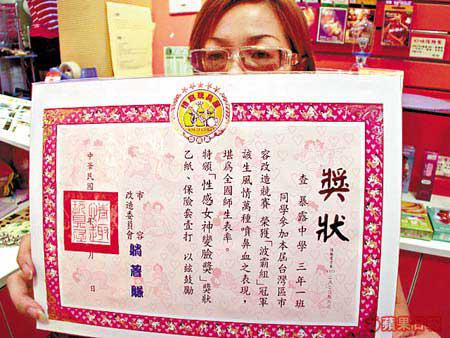 獎狀
查 暴露中學 三年一班
同學參加本屆台灣區市
容改造競賽 榮獲「波霸組」冠軍
該生風情萬種噴鼻血之表現，
堪為全國師生表率。
特頒「性感女神變臉獎」獎狀
乙紙、保險套壹打 以茲鼓勵
市容
改造委員會 躺著賺
中華民國 月 日
蘋果日報